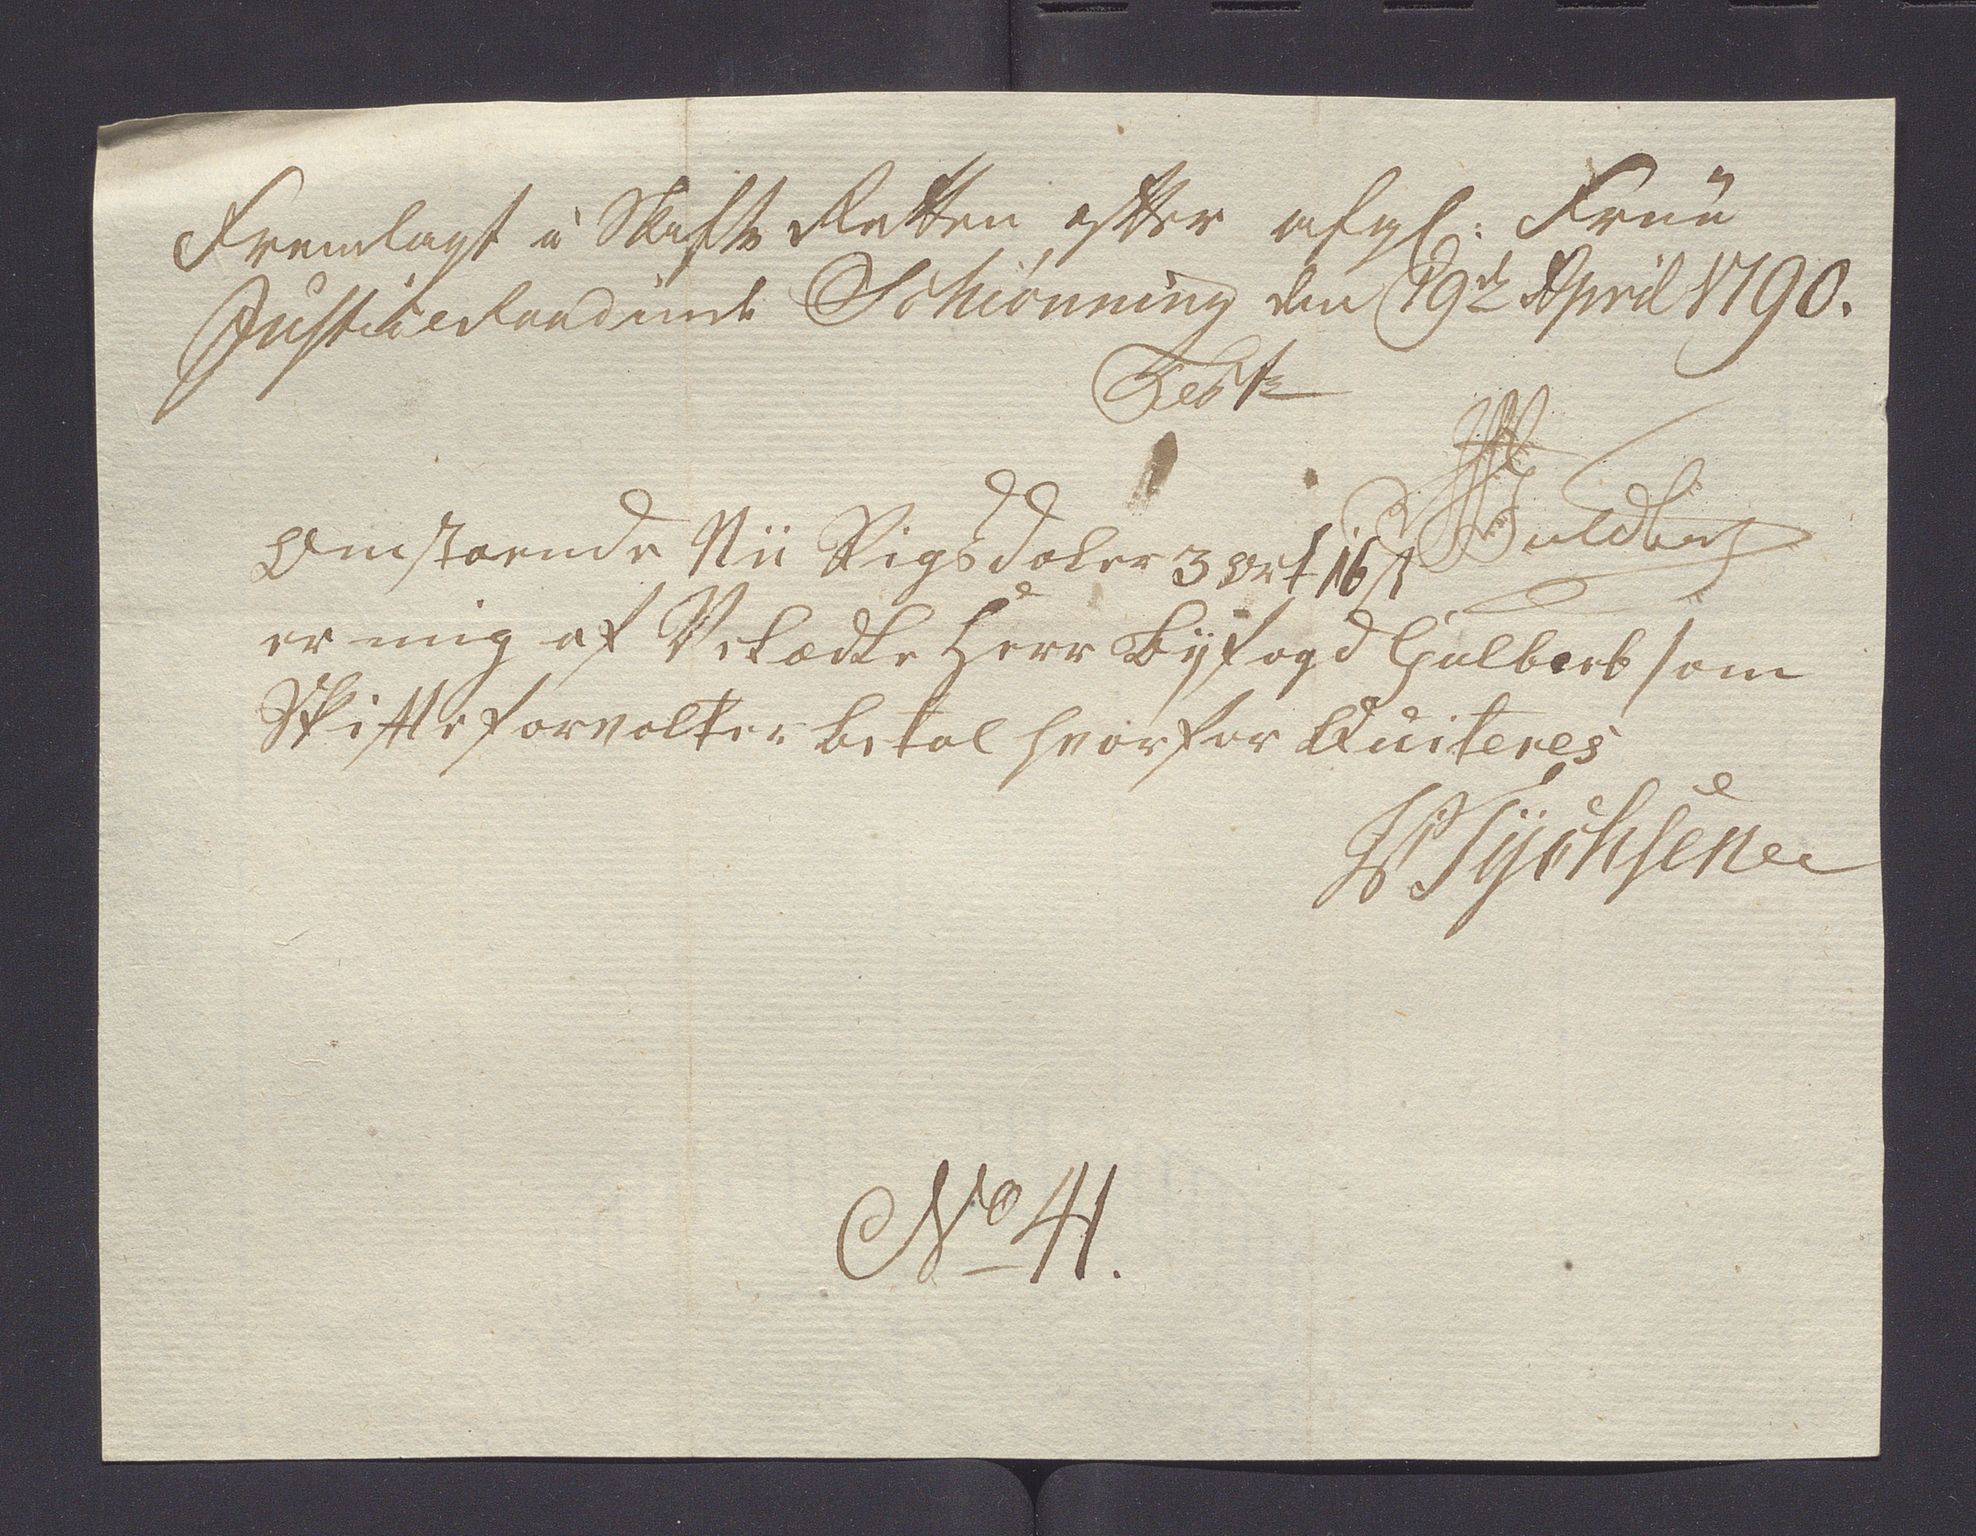 Fremlagt i Skifte Retten efter afgl: Frue
Justitzraadinde Schiønning den 19de April 1790.
Test
Guldberg
Omstaaende Nii Rigsdaler 3 ort 16 s
er mig af Velædle Herr Byfogd Gulberb som
Skifteforvalter betal hvorfor Quiteres
Tychsen
No 41.